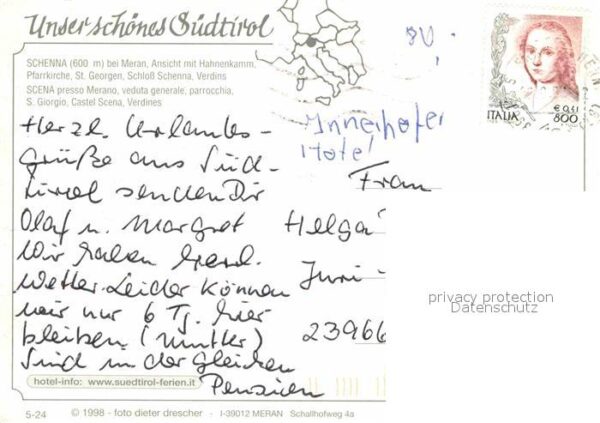 Unser schönes Südtirol
SCHENNA (600 m) bei Meran, Ansicht mit Hahnenkamm,
Pfarrkirche, St. Georgen, Schloß Schenna, Verdins
SCENA presso Merano, veduta generale, parrocchia,
S. Giorgio, Castel Scena, Verdines
Herzl. Urlaubs-
grüße aus Süd-
tirol senden Dir
Olaf u. Margret
Wir haben herrl.
Wetter. Leider können
wir nur 6 Tg. hier
bleiben (Mutter)
Sind in der gleichen
Pension
Innerhofer
Hotel
Frau
Helga
23966
ITALIA
€ 0,41
800
privacy protection
Datenschutz
hotel-info: www.suedtirol-ferien.it
5-24 © 1998 - foto dieter drescher - I-39012 MERAN Schallhofweg 4a